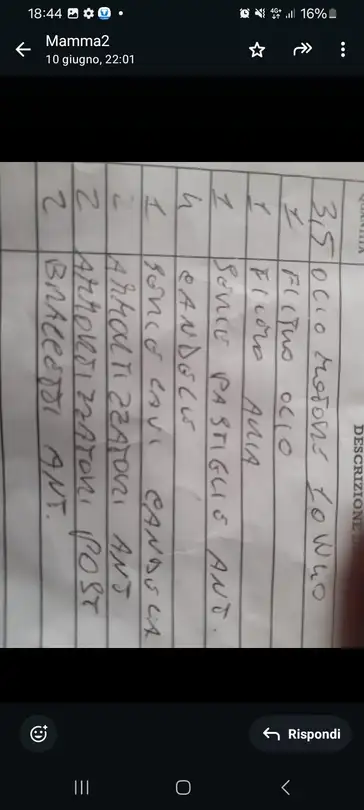 18:44
4G+
16%
Mamma2
10 giugno, 22:01
QUANTITÀ DESCRIZIONE
3,5 OLIO MOTORE 10W40
1 FILTRO OLIO
1 FILTRO ARIA
1 SERIE PASTIGLIE ANT.
4 CANDELE
1 SERIE CAVI CANDELA
2 AMMORTIZZATORI ANT
2 AMMORTIZZATORI POST
2 BRACCETTI ANT.
Rispondi